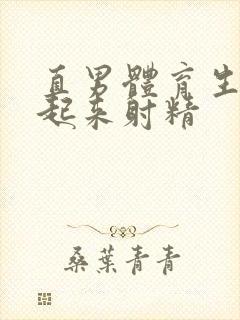 直男體育生
起來射精
桑葉青青